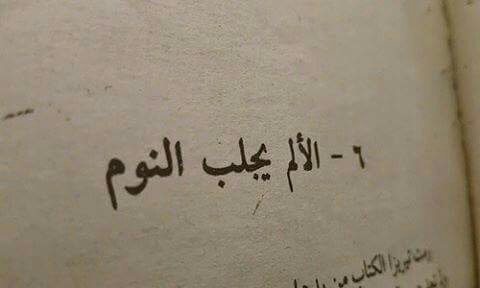 ٦ - الألم يجلب النوم
الكتاب من